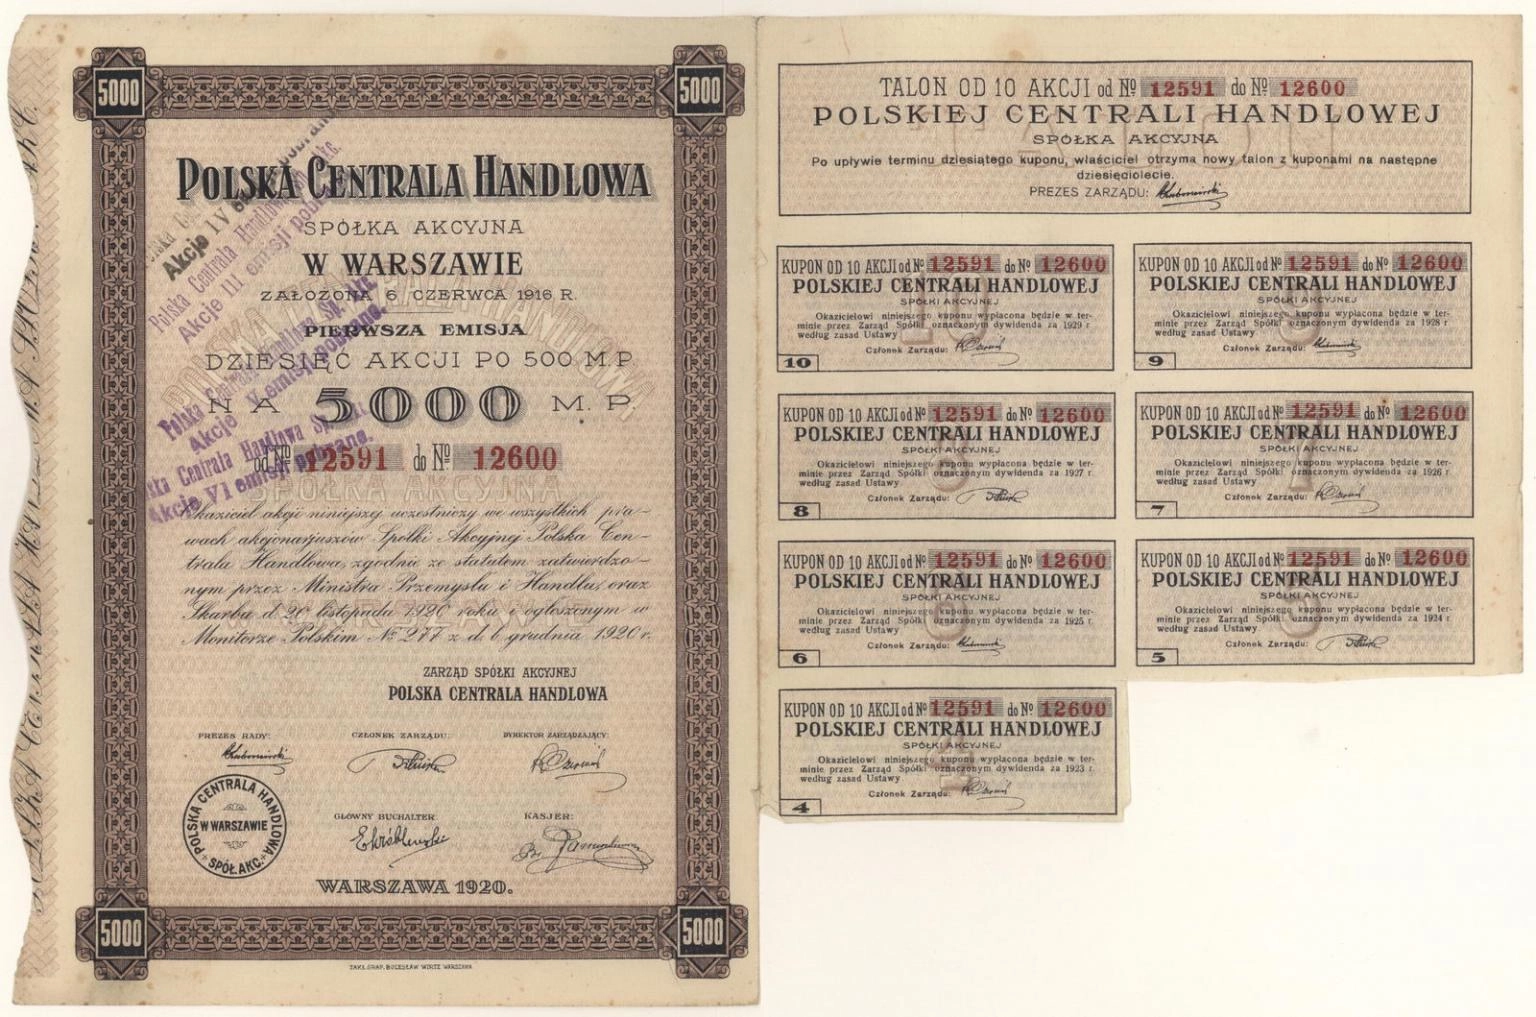 5000
5000
POLSKA CENTRALA HANDLOWA
SPÓŁKA AKCYJNA
W WARSZAWIE
ZAŁOŻONA 6 CZERWCA 1916 R.
PIERWSZA EMISJA
DZIESIĘĆ AKCJI PO 500 M.P.
NA 5000 M.P.
od № 12591 do № 12600
Okaziciel akcji niniejszej uczestniczy we wszystkich pra-
wach akcjonarjuszów Spółki Akcyjnej Polska Cen-
trala Handlowa, zgodnie ze statutem zatwierdzo-
nym przez Ministra Przemysłu i Handlu, oraz
Skarbu d. 20 listopada 1920 roku i ogłoszonym w
Monitorze Polskim № 277 z d. 6 grudnia 1920 r.
ZARZĄD SPÓŁKI AKCYJNEJ
POLSKA CENTRALA HANDLOWA
PREZES RADY: CZŁONEK ZARZĄDU: DYREKTOR ZARZĄDZAJĄCY:
GŁÓWNY BUCHALTER KASJER:
POLSKA CENTRALA HANDLOWA
W WARSZAWIE
SPÓŁ. AKC.
WARSZAWA 1920.
5000
5000
ZAKŁ. GRAF. BOLESŁAW WIRTZ WARSZAWA
Akcje IV
Polska Centrala Handlowa
Akcje III emisji
Polska Centrala Handlowa Sp. Akc.
Akcje V emisji pobrano.
Centrala Handlowa Sp.
Akcje VI emisji pobrano.
TALON OD 10 AKCJI od № 12591 do № 12600
POLSKIEJ CENTRALI HANDLOWEJ
SPÓŁKA AKCYJNA
Po upływie terminu dziesiątego kuponu, właściciel otrzyma nowy talon z kuponami na następne
dziesięciolecie.
PREZES ZARZĄDU:
KUPON OD 10 AKCJI od № 12591 do № 12600
POLSKIEJ CENTRALI HANDLOWEJ
SPÓŁKI AKCYJNEJ
Okazicielowi niniejszego kuponu wypłacona będzie w ter-
minie przez Zarząd Spółki oznaczonym dywidenda za 1929 r
według zasad Ustawy
Członek Zarządu:
10
KUPON OD 10 AKCJI od № 12591 do № 12600
POLSKIEJ CENTRALI HANDLOWEJ
SPÓŁKI AKCYJNEJ
Okazicielowi niniejszego kuponu wypłacona będzie w ter-
minie przez Zarząd Spółki oznaczonym dywidenda za 1928 r
według zasad Ustawy
Członek Zarządu:
9
KUPON OD 10 AKCJI od № 12591 do № 12600
POLSKIEJ CENTRALI HANDLOWEJ
SPÓŁKI AKCYJNEJ
Okazicielowi niniejszego kuponu wypłacona będzie w ter-
minie przez Zarząd Spółki oznaczonym dywidenda za 1927 r
według zasad Ustawy
Członek Zarządu:
8
KUPON OD 10 AKCJI od № 12591 do № 12600
POLSKIEJ CENTRALI HANDLOWEJ
SPÓŁKI AKCYJNEJ
Okazicielowi niniejszego kuponu wypłacona będzie w ter-
minie przez Zarząd Spółki oznaczonym dywidenda za 1926 r
według zasad Ustawy
Członek Zarządu:
7
KUPON OD 10 AKCJI od № 12591 do № 12600
POLSKIEJ CENTRALI HANDLOWEJ
SPÓŁKI AKCYJNEJ
Okazicielowi niniejszego kuponu wypłacona będzie w ter-
minie przez Zarząd Spółki oznaczonym dywidenda za 1925 r
według zasad Ustawy
Członek Zarządu:
6
KUPON OD 10 AKCJI od № 12591 do № 12600
POLSKIEJ CENTRALI HANDLOWEJ
SPÓŁKI AKCYJNEJ
Okazicielowi niniejszego kuponu wypłacona będzie w ter-
minie przez Zarząd Spółki oznaczonym dywidenda za 1924 r
według zasad Ustawy
Członek Zarządu:
5
KUPON OD 10 AKCJI od № 12591 do № 12600
POLSKIEJ CENTRALI HANDLOWEJ
SPÓŁKI AKCYJNEJ
Okazicielowi niniejszego kuponu wypłacona będzie w ter-
minie przez Zarząd Spółki oznaczonym dywidenda za 1923 r
według zasad Ustawy
Członek Zarządu:
4